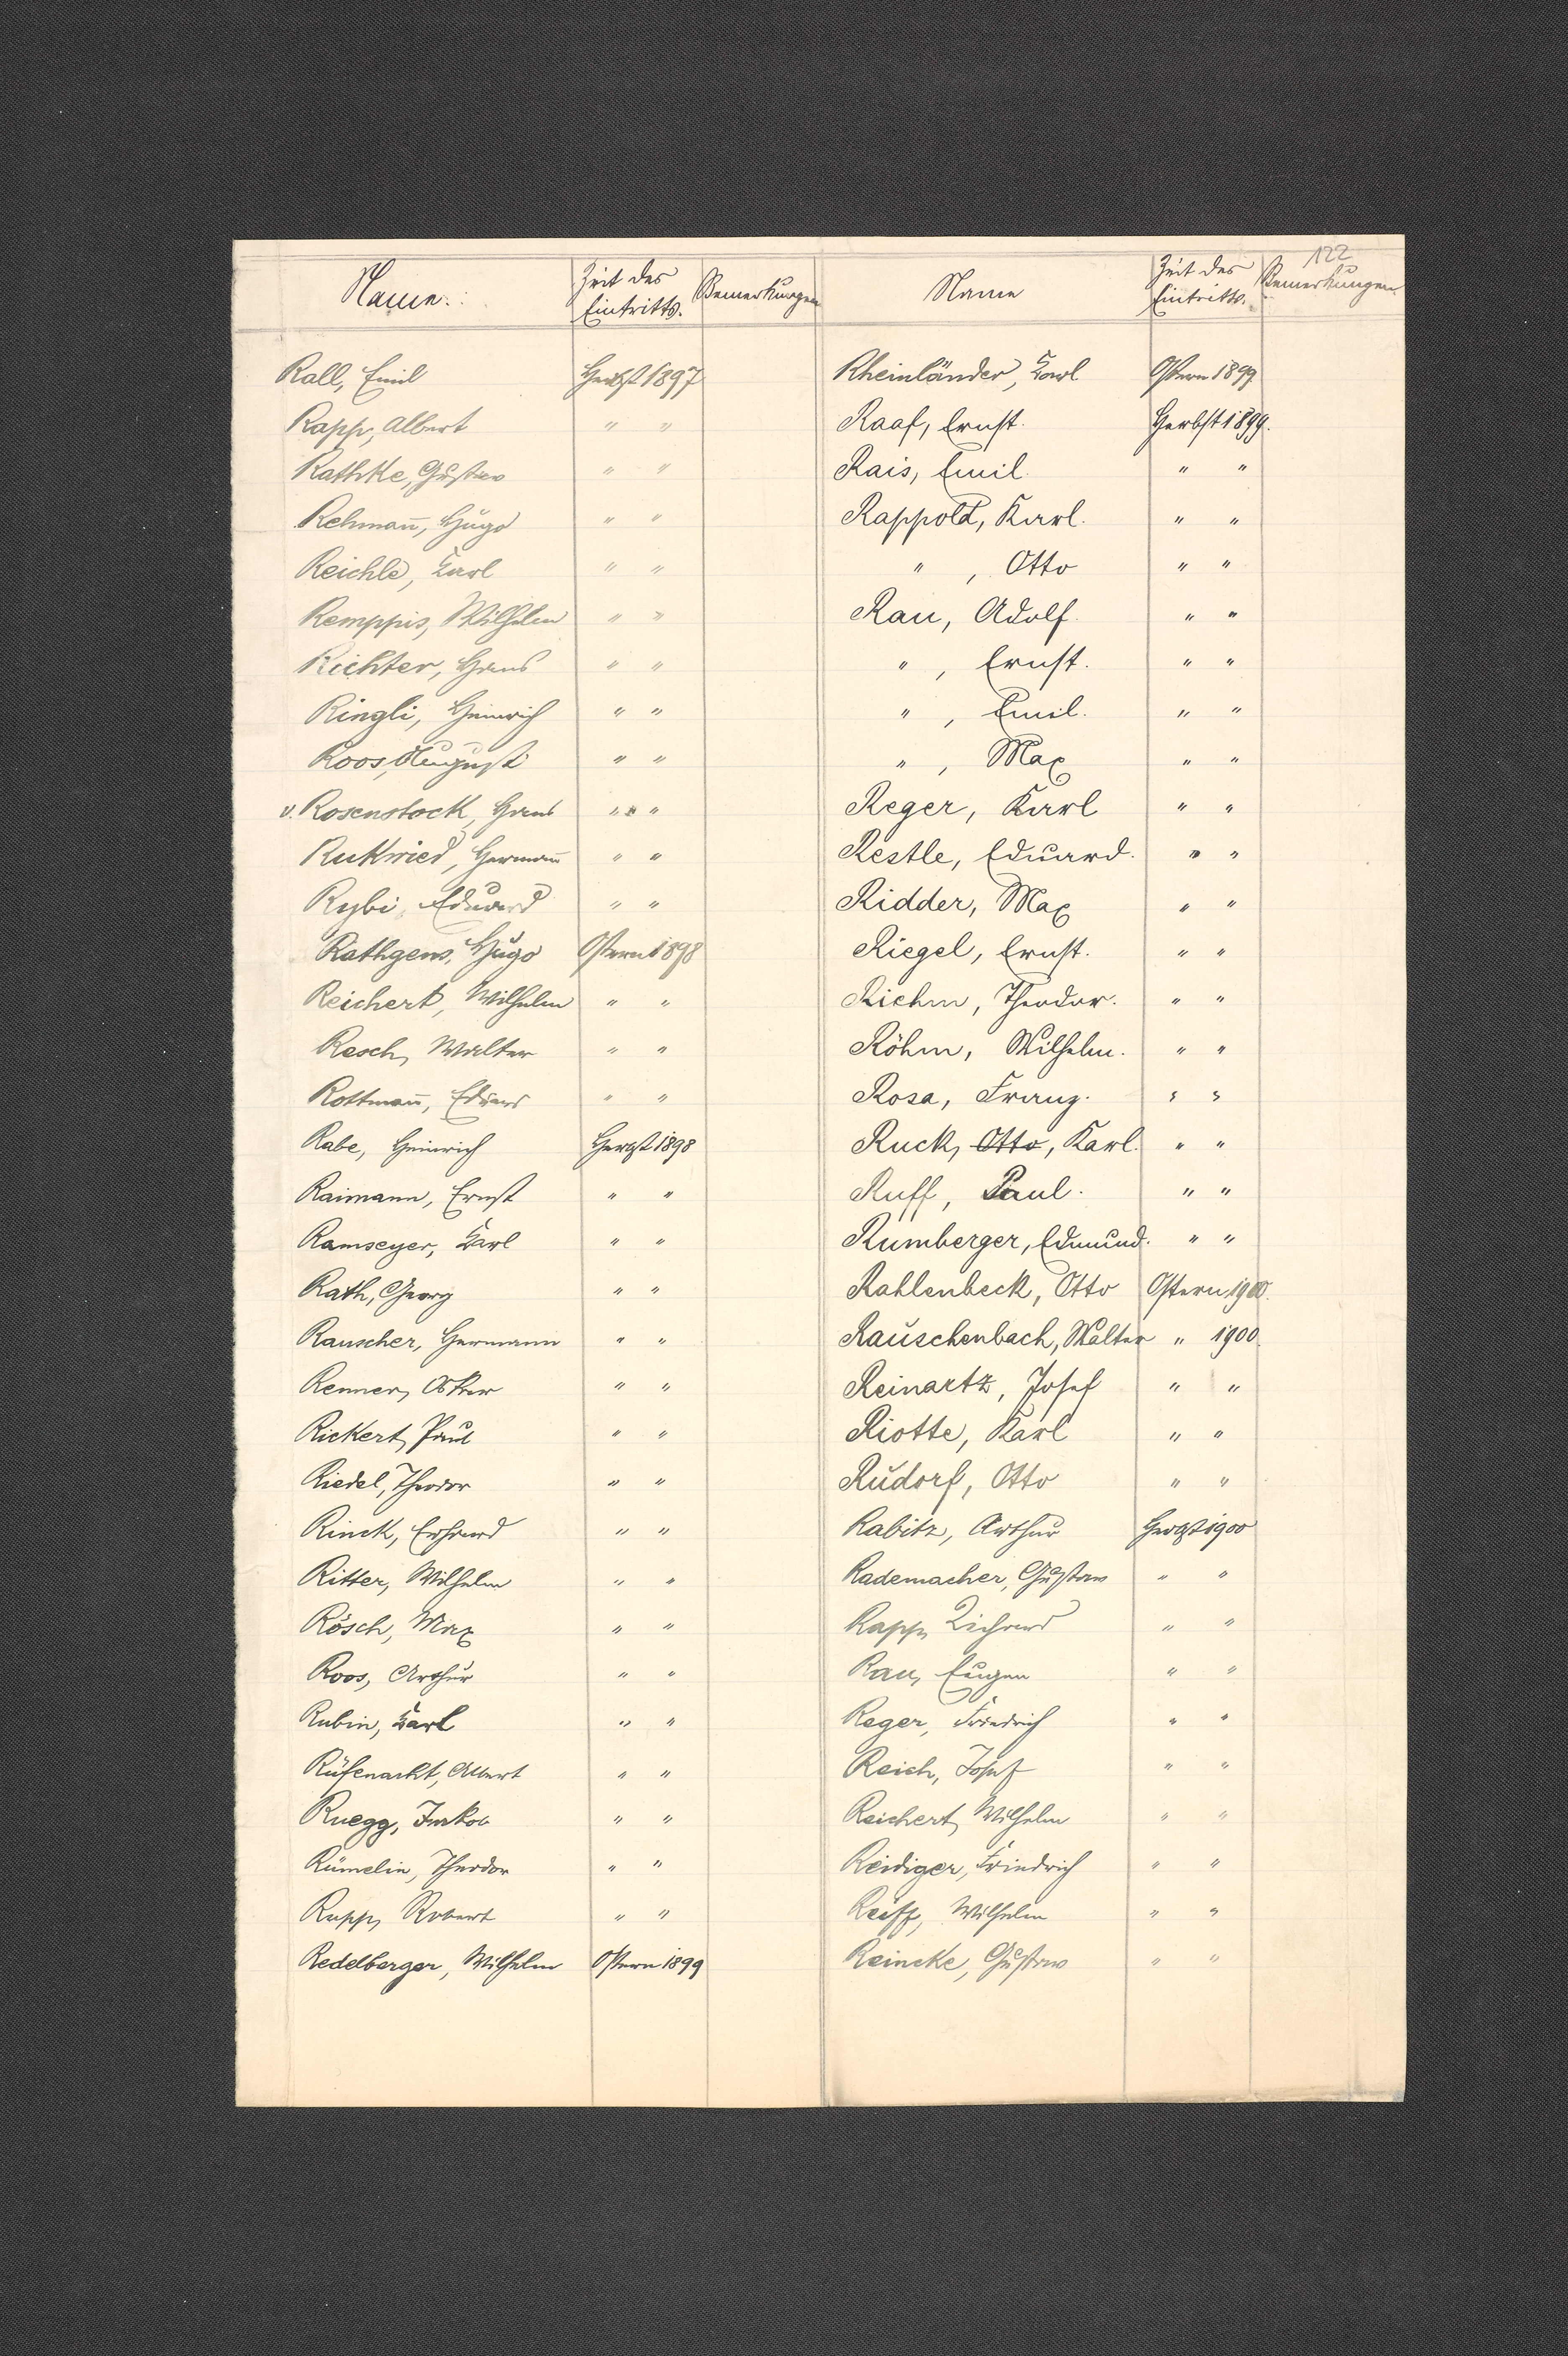 122
Name. Zeit des Eintritts. Bemerkungen
Rall, Emil Herbst 1897
Rapp, Albert " "
Rathke, Gustav " "
Rehmañ, Hugo " "
Reichle, Karl " "
Remppis, Wilhelm " "
Richter, Hans " "
Ringli, Heinrich " "
Roos, August " "
v. Rosenstock, Hans " " "
Rukwied, Hermañ " "
Rybi, Eduard " "
Rathgens, Hugo Ostern 1898
Reichert, Wilhelm " "
Resch, Walter " "
Rottmañ, Eduard " "
Rabe, Heinrich Herbst 1898
Raimann, Ernst " "
Ramseyer, Karl " "
Rath, Georg " "
Rauscher, Hermann " "
Renner, Oskar " "
Rickert, Paul " "
Riedel, Theodor " "
Rinck, Erhard " "
Ritter, Wilhelm " "
Rösch, Max " "
Roos, Arthur " "
Rubin, Karl " "
Rüfenacht, Albert " "
Ruegg, Jakob " "
Rümelin, Theodor " "
Rupp, Robert " "
Redelberger, Wilhelm Ostern 1899
Name Zeit des Eintritts. Bemerkungen
Rheinländer, Karl Ostern 1899
Raaf, Ernst. Herbst 1899.
Rais, Emil. " "
Rappold, Karl. " "
" , Otto " "
Rau, Adolf. " "
" , Ernst. " "
" , Emil. " "
" , Max " "
Reger, Karl " "
Restle, Eduard. " "
Ridder, Max " "
Riegel, Ernst. " "
Riehm, Theodor. " "
Röhm, Wilhelm. " "
Rosa, Franz. " "
Ruck, Otto, Karl. " "
Ruff, Paul. " "
Rumberger, Edmund. " "
Rahlenbeck, Otto Ostern 1900.
Rauschenbach, Walter " 1900.
Reinartz, Josef " "
Riotte, Karl " "
Rudorf, Otto " "
Rabitz, Arthur Herbst 1900
Rademacher, Gustav " "
Rapp, Richard " "
Rau, Eugen " "
Reger, Friedrich " "
Reich, Josef " "
Reichert, Wilhelm " "
Reidiger, Friedrich " "
Reiff, Wilhelm " "
Reincke, Gustav " "